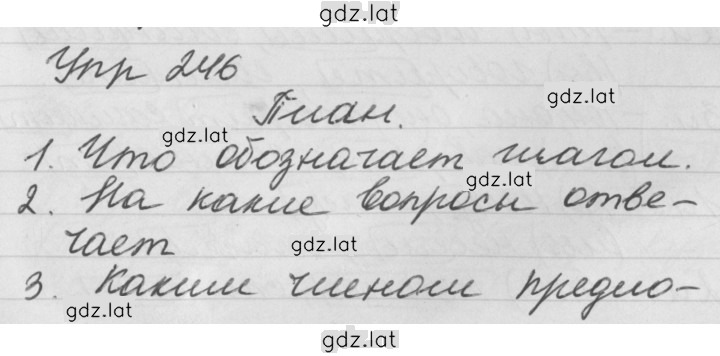 gdz.lat
Упр 246
gdz.lat
План.
gdz.lat
1. Что обозначает глагол.
gdz.lat
2. На какие вопросы отве-
чает
gdz.lat
3. Каким членом предло-
gdz.lat
gdz.lat